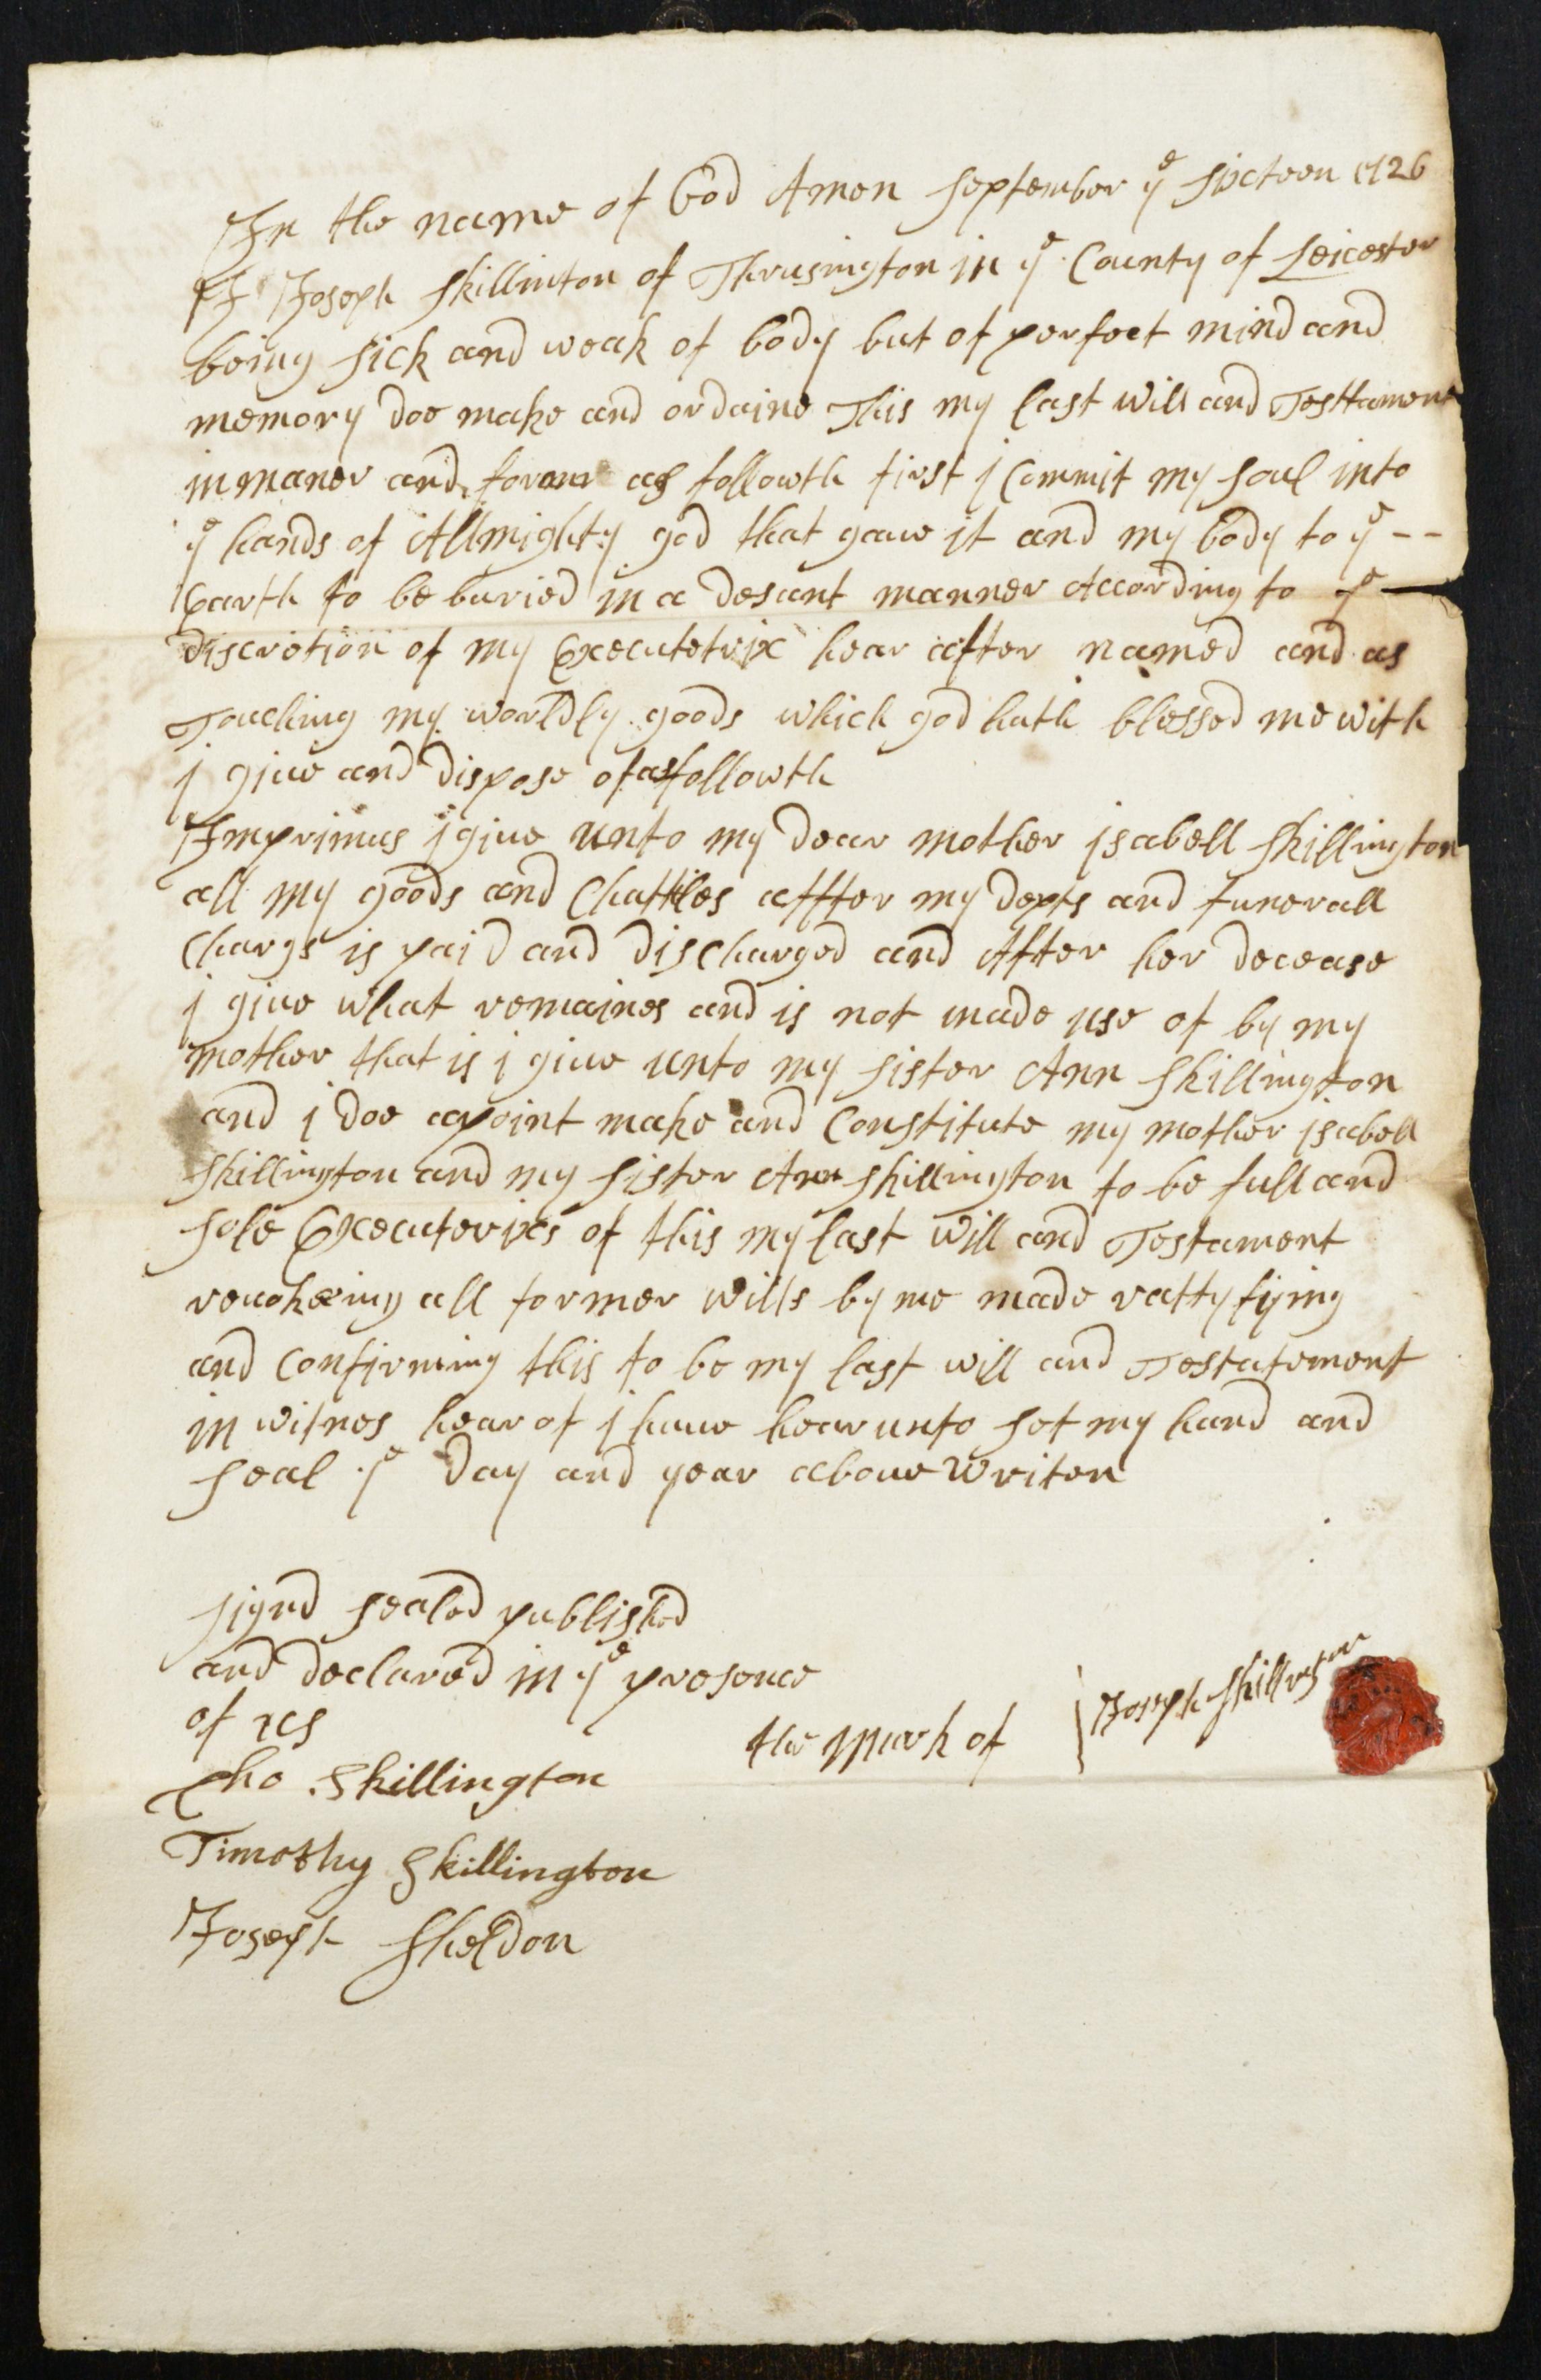 In the name of God Amen september yͤ sixteen 1726
I Joseph skillinton of Thrusington in yͤ County of Leicester
being sick and weak of body but of perfect mind and
memory doe make and ordaine This my last will and Testtament
in maner and as followth first j Commit my soul into
yͤ hands of Allmighty god that gave it and my body to yͤ --
Earth to be buried in a desant manner According to yͤ —
discretion of my Executetrix hear after named and as
Touching my worldly goods which god hath blessed me with
j give and dispose of as followth
Imprimus j give unto my dear mother jsabell skillington
all my goods and Chattles affter my depts and funerall
Chargs is paid and discharged and After her decease
j give what remaines and is not made use of by my
mother that is j give unto my sister Ann skillington
and j doe apoint make and Constitute my mother jsabell
skillington and my sister Ann skillington to be full and
sole Executerixs of this my last will and Testament
all former wills by me made rattyfijing
and Confirming this to be my last will and Testatement
in witnes hear of j have hear unto set my hand and
seal yͤ day and year above writen
signd sealed published
and declared in yͤ presence
of us
the mark of Joseph skillington
Tho Skillington
Timothy Skillington
Joseph Sheldon